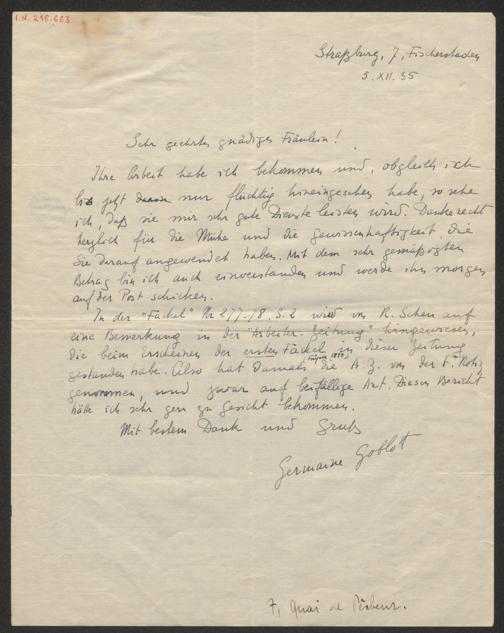 I.N. 216.663
Straßburg, 7, Fischerstaden
5. XII. 35
Sehr geehrtes gnädiges Fräulein!
Ihre Arbeit habe ich bekommen und, obgleich ich
bis jetzt nur flüchtig hineingesehen habe, so sehe
ich, daß sie mir sehr gute Dienste leisten wird. Danke recht
herzlich für die Mühe und die Gewissenhaftigkeit, die
Sie darauf angewendet haben. Mit dem sehr gemäßigten
Betrag bin ich auch einverstanden und werde ihn morgen
auf der Post schicken.
In der "Fackel" Nr 277-78, S. 2 wird von R. Scheu auf
eine Bemerkung in der "Arbeiter-Zeitung" hingewiesen,
die beim erscheinen der ersten Fackel in dieser Zeitung
gestanden habe. Also hat damals die A. Z. von der F. Notiz
genommen, und zwar auf beifällige Art. Diesen Bericht
hätte ich sehr gern zu Gesicht bekommen.
Mit bestem Dank und Gruß
Germaine Goblot
7, Quai de Pêcheur.